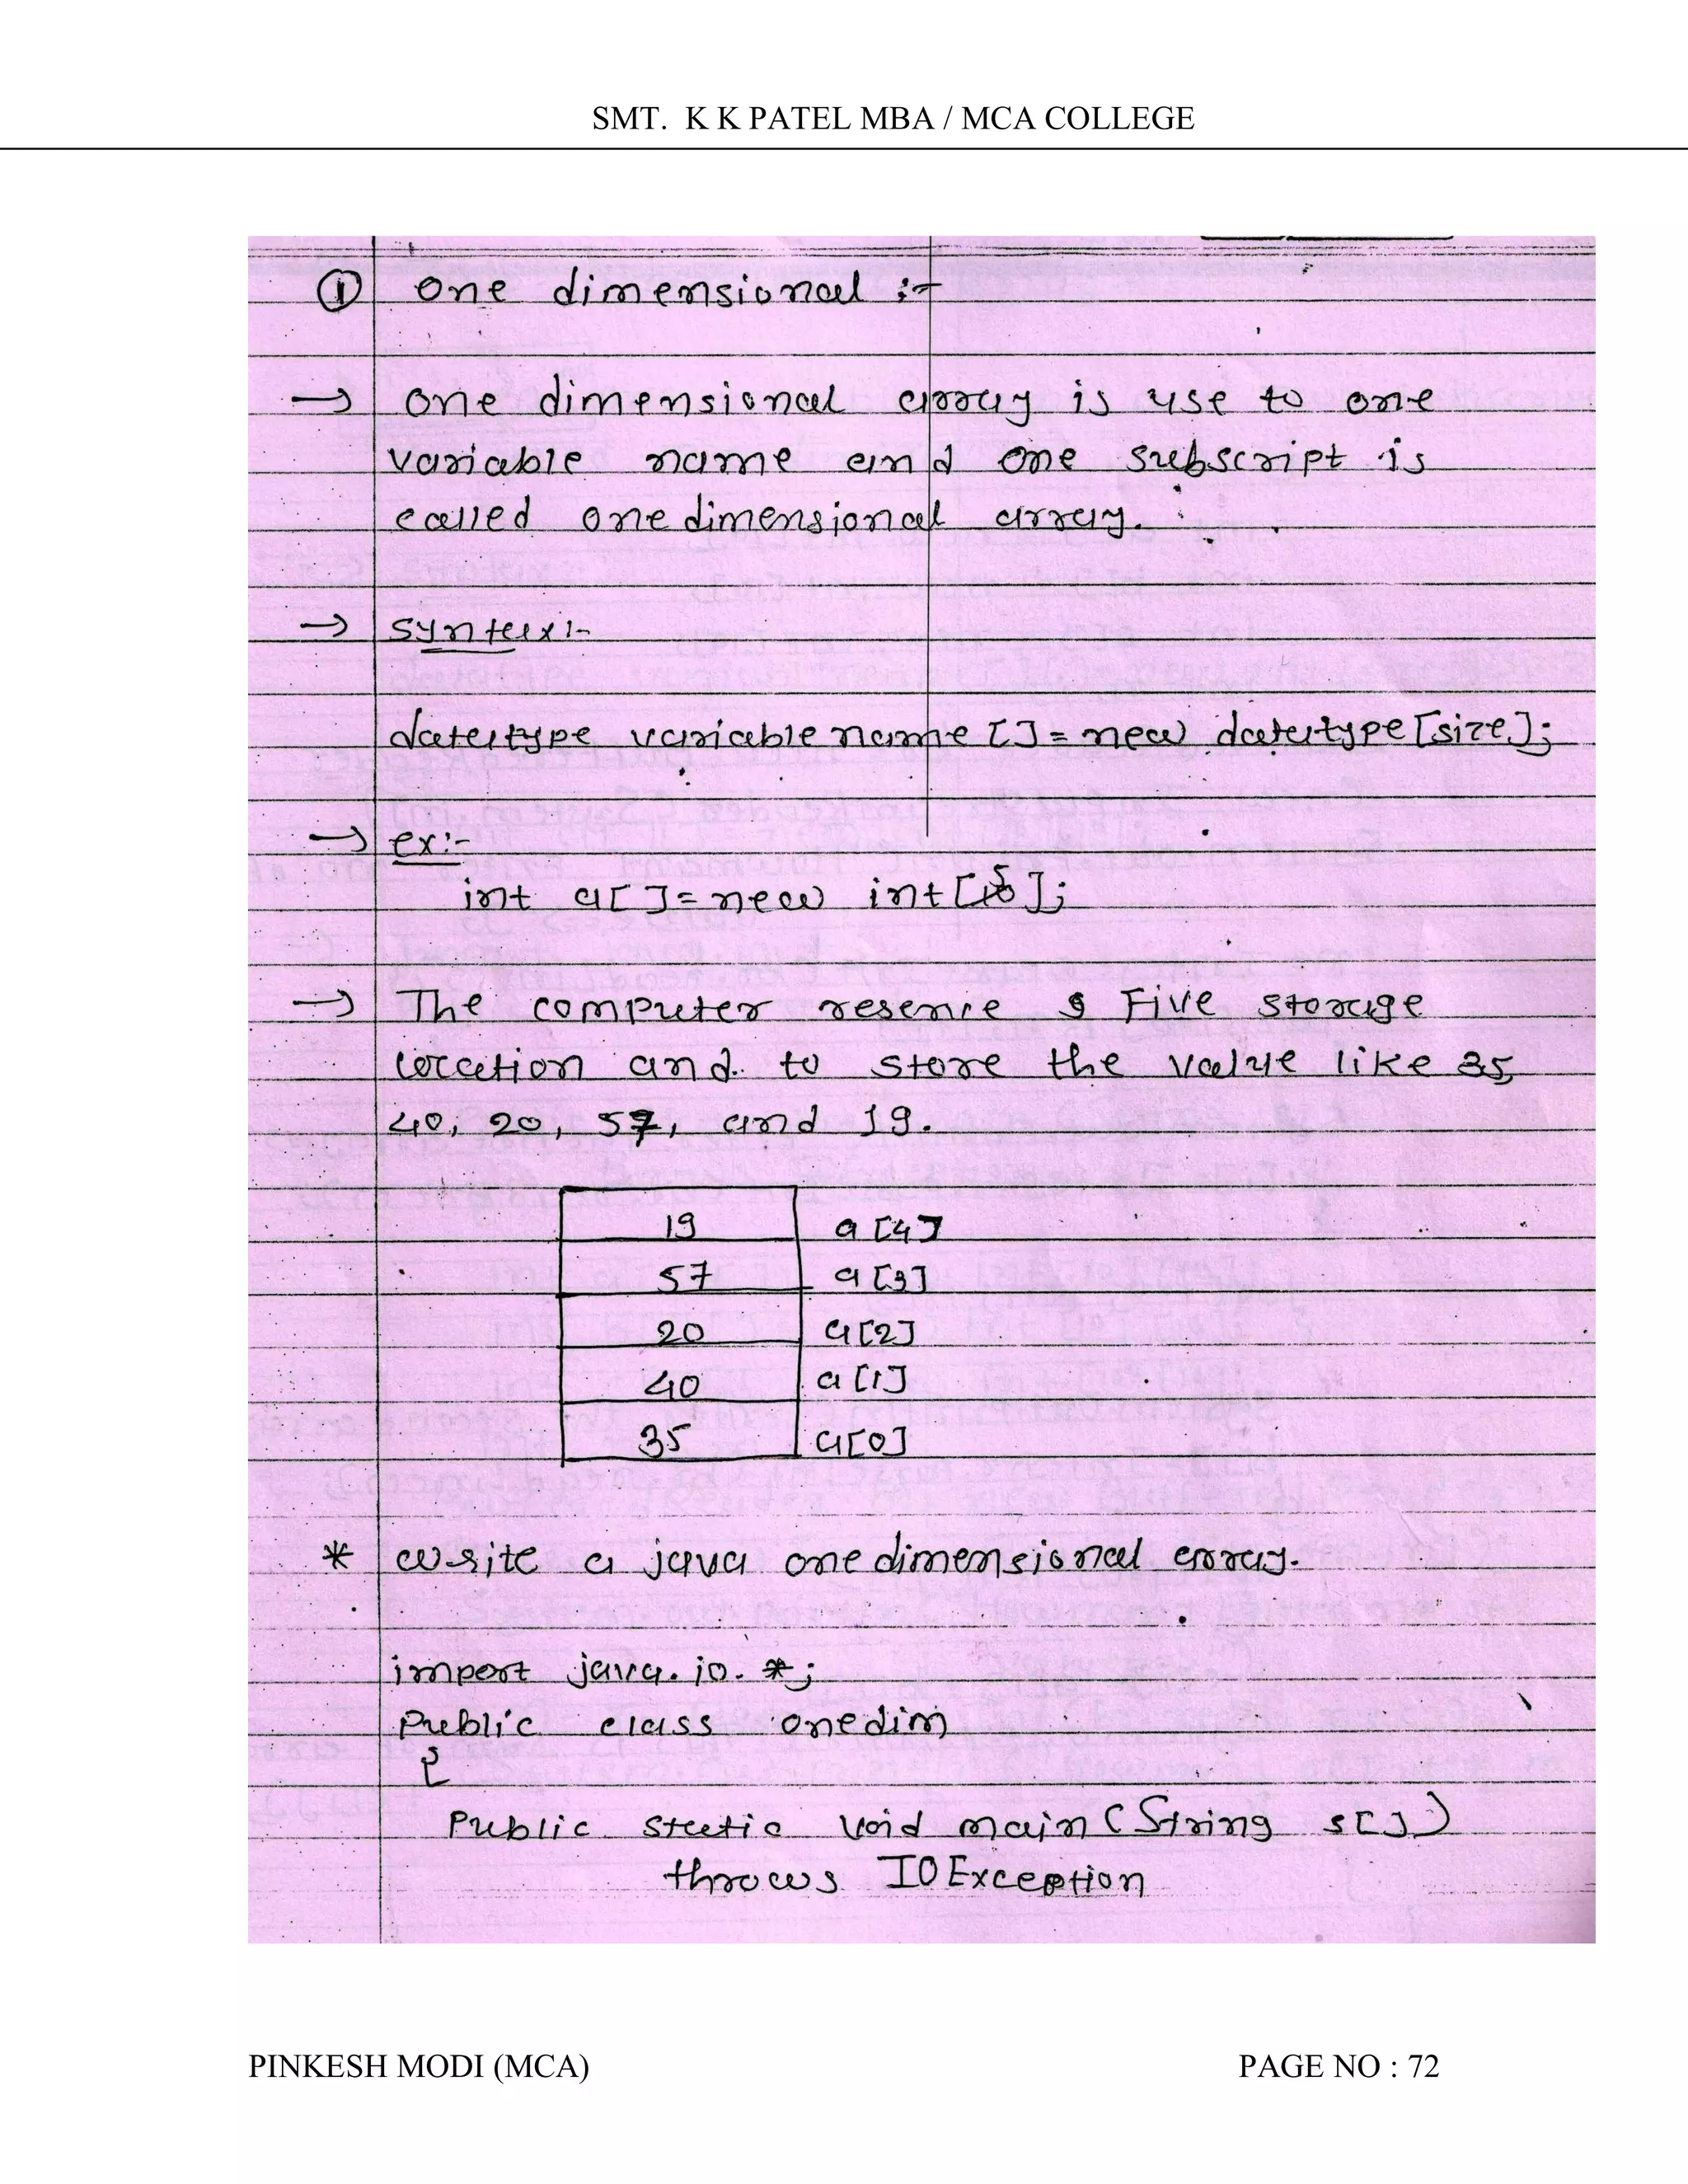 SMT. K K PATEL MBA / MCA COLLEGE
① one dimensional :-
→ one dimensional array is use to one
variable name and one subscript is
called onedimensional array.
→ syntax:-
datatype variablename []=new datatype[size];
→ ex:-
int a[]=new int[5];
→ The computer reserve Five storage
location and to store the value like 35,
40, 20, 57, and 19.
19 a[4]
57 a[3]
20 a[2]
40 a[1]
35 a[0]
* write a java onedimensional array.
import java.io.*;
Public class onedim
{
Public static void main(String s[])
throws IOException
PINKESH MODI (MCA) PAGE NO : 72